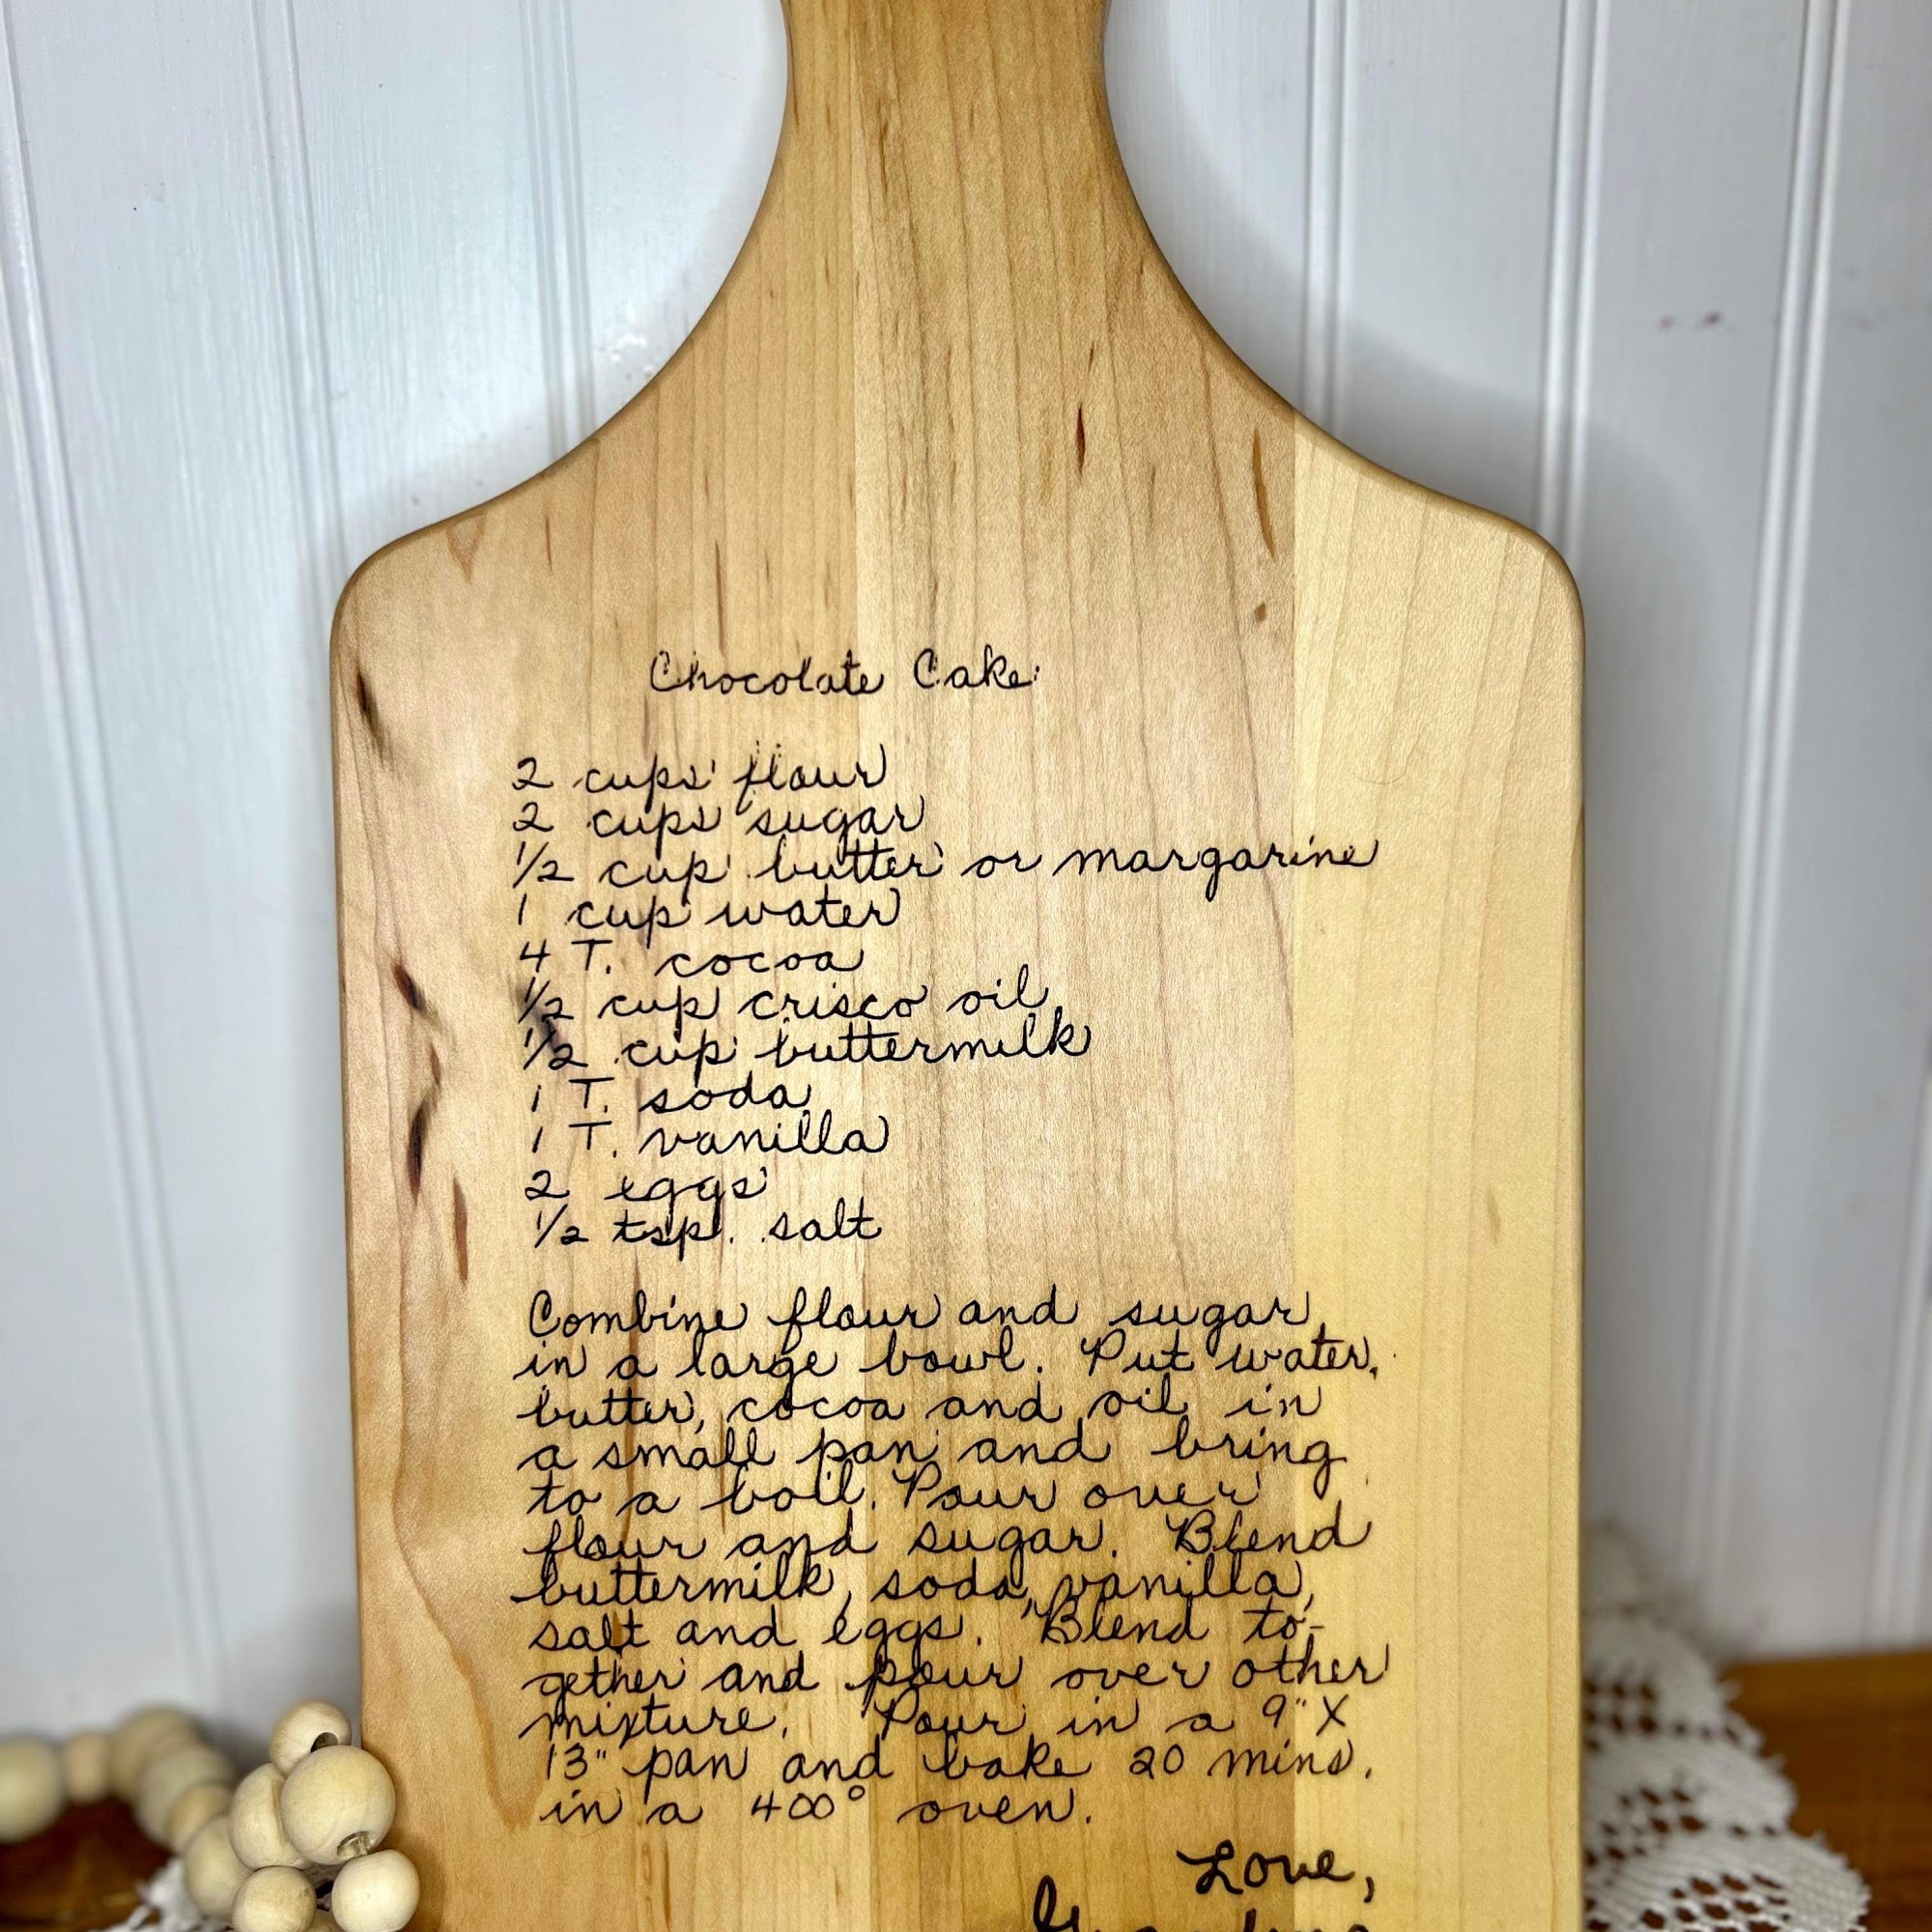 Chocolate Cake
2 cups flour
2 cups sugar
1/2 cup butter or margarine
1 cup water
4 T. cocoa
1/2 cup crisco oil
1/2 cup buttermilk
1 T. soda
1 T. vanilla
2 eggs
1/2 tsp. salt
Combine flour and sugar
in a large bowl. Put water,
butter, cocoa and oil in
a small pan and bring
to a boil. Pour over
flour and sugar. Blend
buttermilk, soda, vanilla,
salt and eggs. Blend to-
gether and pour over other
mixture. Pour in a 9" X
13" pan and bake 20 mins.
in a 400° oven.
Love,